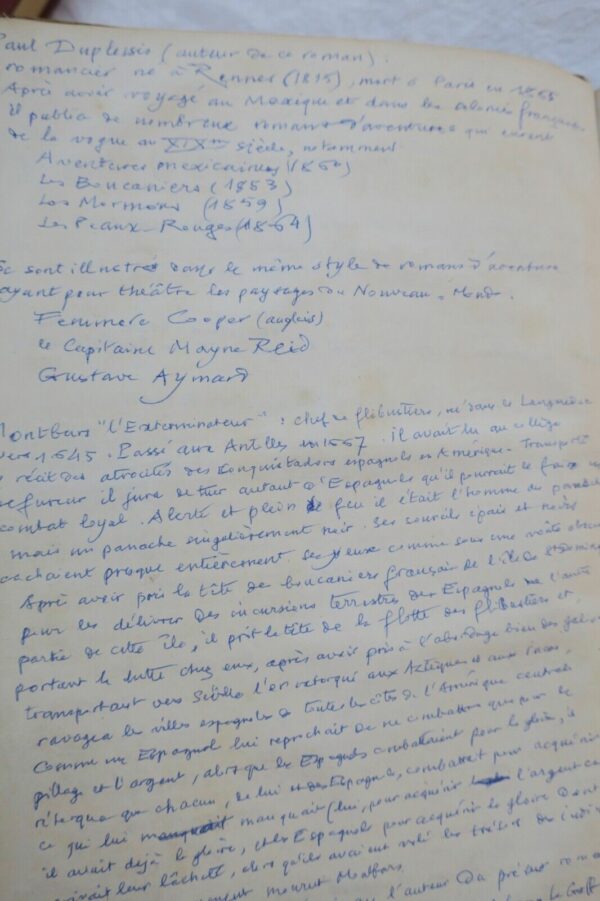 Paul Duplessis (auteur de ce roman).
romancier né à Rennes (1815), mort à Paris en 1865
Après avoir voyagé au Mexique et dans les colonies françaises
il publia de nombreux romans d'aventures qui eurent
de la vogue au XIXme siècle, notamment
Aventures mexicaines (1860)
Les Boucaniers (1853)
Les Mormons (1859)
Les Peaux-Rouges (1864)
Se sont illustrés dans le même style de romans d'aventure
ayant pour théâtre les paysages du Nouveau-Monde.
Fenimore Cooper (anglais)
le Capitaine Mayne Reid
Gustave Aymard
Montbars "l'Exterminateur" : chef de flibustiers, né dans le Languedoc
vers 1645. Passé aux Antilles en 1667. Il avait lu au collège
récit des atrocités des Conquistadors espagnols en Amérique. Transporté
de fureur il jura de tuer autant d'Espagnols qu'il pourrait le faire
combat loyal. Alerte et plein de feu il était l'homme du
mais un panache singulièrement noir. Ses sourcils épais et noirs
cachaient presque entièrement ses yeux comme sous une voûte
Après avoir pris la tête de boucaniers français de l'île de St Domingue
pour les délivrer des incursions terrestres des Espagnols de l'autre
partie de cette île, il prit la tête de la flotte des flibustiers et,
portant la lutte chez eux, après avoir pris à l'abordage bien des
transportant vers Séville l'or extorqué aux Aztèques et aux Incas,
ravagea les villes espagnoles de toutes les côtes de l'Amérique centrale
Comme un Espagnol lui reprochait de ne combattre que pour le
pillage et l'argent, alors que les Espagnols combattaient pour la gloire, il
rétorqua que chacun, de lui et des Espagnols, combattait pour acquérir
ce qui lui manquait (lui, pour acquérir l'argent car
il avait déjà la gloire, et les Espagnols pour acquérir la gloire dont
leur lâcheté, alors qu'ils avaient volé les trésors des
mourut Montbars
l'auteur du présent roman